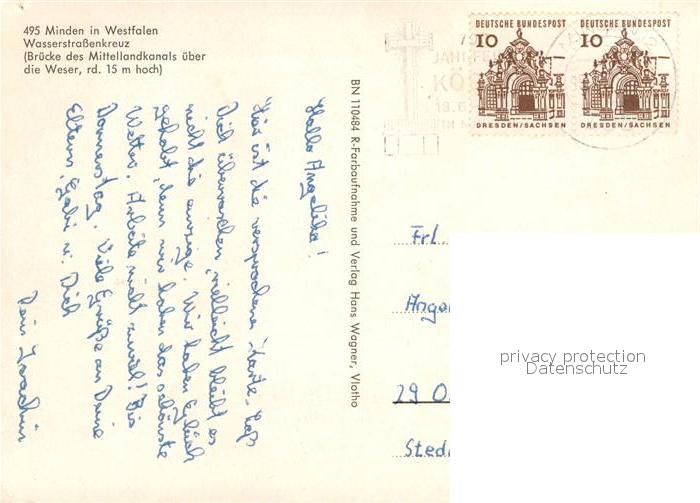 495 Minden in Westfalen
Wasserstraßenkreuz
(Brücke des Mittellandkanals über
die Weser, rd. 15 m hoch)
DEUTSCHE BUNDESPOST
10
DRESDEN/SACHSEN
DEUTSCHE BUNDESPOST
10
DRESDEN/SACHSEN
Hallo Angelika!
Hier ist die versprochene Karte. Laß
Dich überraschen, vielleicht bleibt es
nicht die einzige. Wir haben Glück
gehabt, denn wir haben das schönste
Wetter. Arbeite nicht zuviel! Bis
Donnerstag. Viele Grüße an Deine
Eltern, Gabi u. Dich
Dein Joachim
BN 110484 R-Farbaufnahme und Verlag Hans Wagner, Vlotho
Frl.
Ange
29 O
Sted
privacy protection
Datenschutz